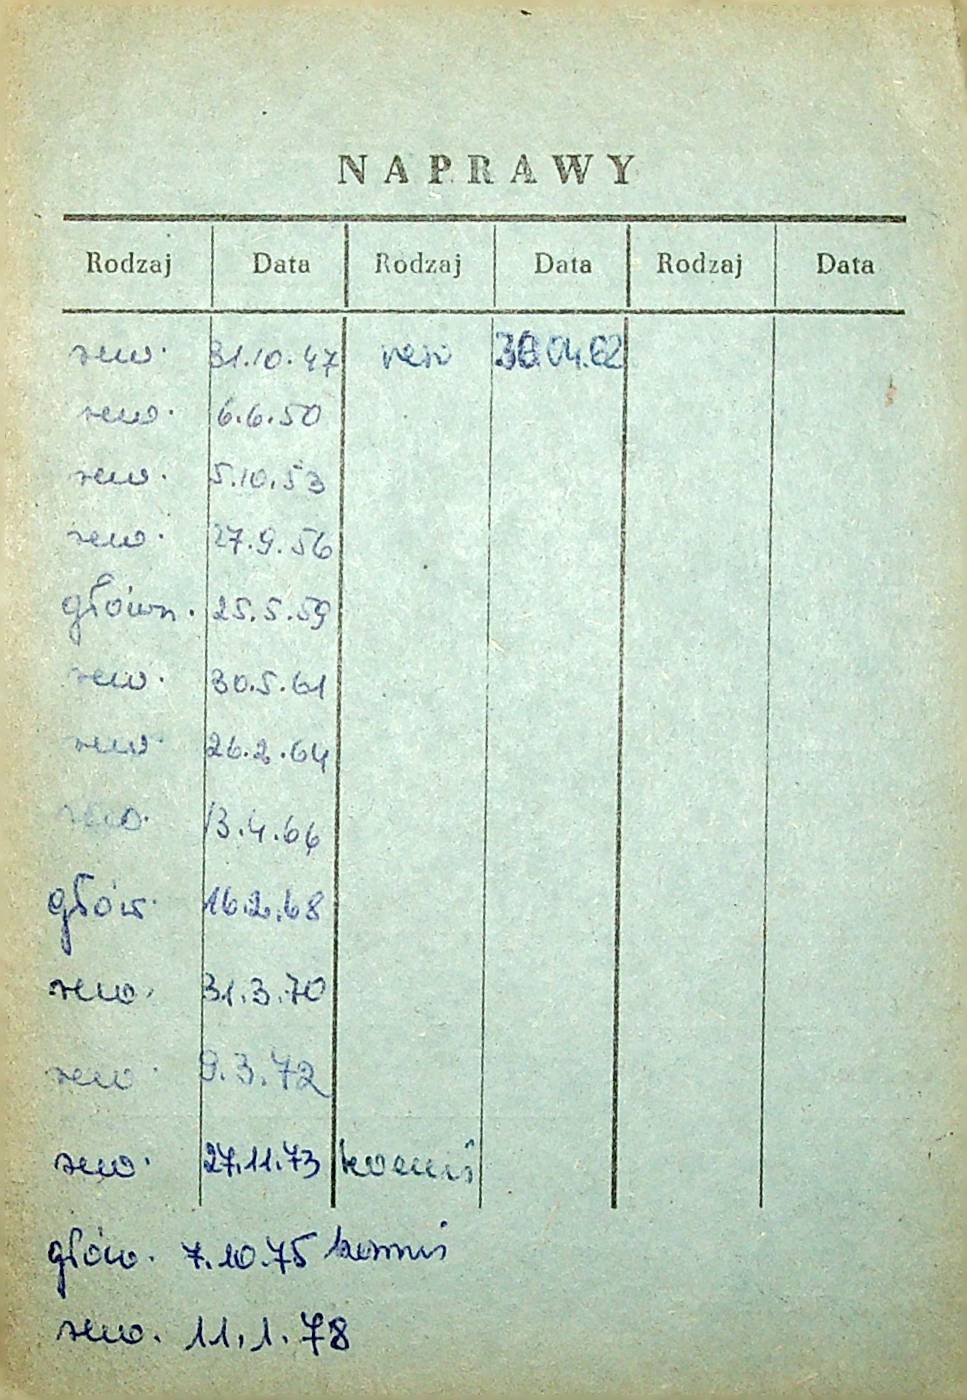 NAPRAWY
Rodzaj Data Rodzaj Data Rodzaj Data
rew. 31.10.47 rew 30.04.62
rew. 6.6.50
rew. 5.10.53
rew. 27.9.56
główn. 25.5.59
rew. 30.5.61
rew. 26.2.64
rew. 13.4.66
głów. 16.2.68
rew. 31.3.70
rew. 9.3.72
rew. 27.11.73
głów. 7.10.75
rew. 11.1.78